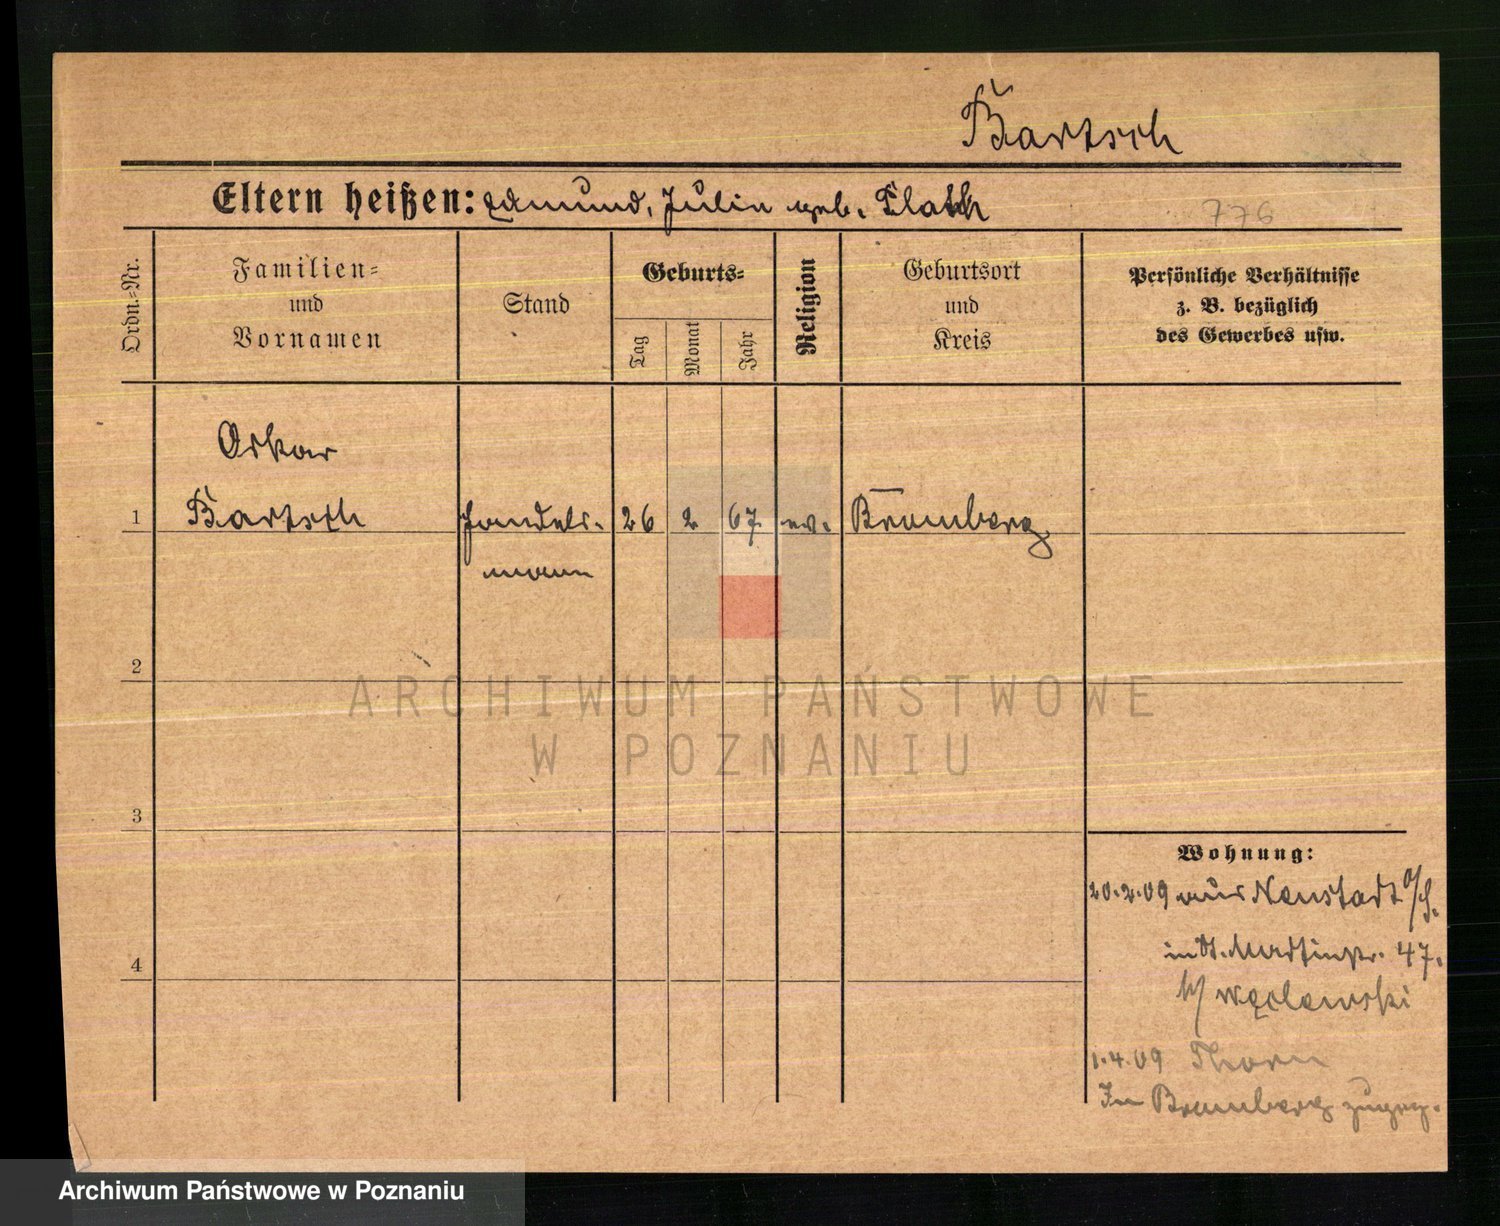 Bartsch
Eltern heißen: Edmund, Julie geb. Plath
776
Ordn.-Nr.
Familien-
und
Vornamen
Stand
Geburts-
Tag
Monat
Jahr
Religion
Geburtsort
und
Kreis
Persönliche Verhältnisse
z. B. bezüglich
des Gewerbes usw.
Oskar
1 Bartsch Handels- 26 2 67. ev. Bromberg
mann
2
ARCHIWUM PAŃSTWOWE
W POZNANIU
3
Wohnung:
20.2.09 aus Neustadt
in St. Martinstr. 47.
4
b/ Węclewski
1.4.09 Thorn
In Bromberg zugez.
Archiwum Państwowe w Poznaniu